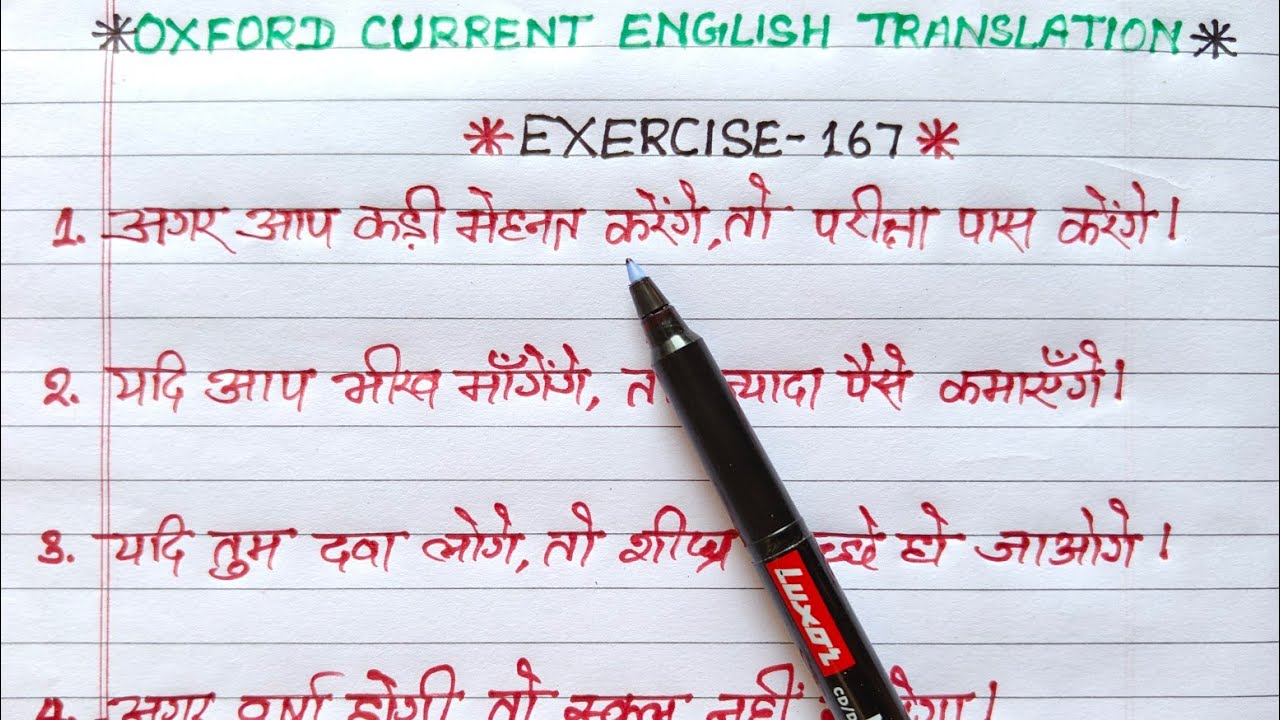 *OXFORD CURRENT ENGLISH TRANSLATION*
*EXERCISE-167*
1. अगर आप कड़ी मेहनत करेंगे, तो परीक्षा पास करेंगे।
2. यदि आप भीख माँगेंगे, पैसे कमाएँगे।
3. यदि तुम दवा लोगे, तो शीघ्र हो जाओगे।
4. अगर वर्षा होगी तो स्कूल नहीं
Luxor